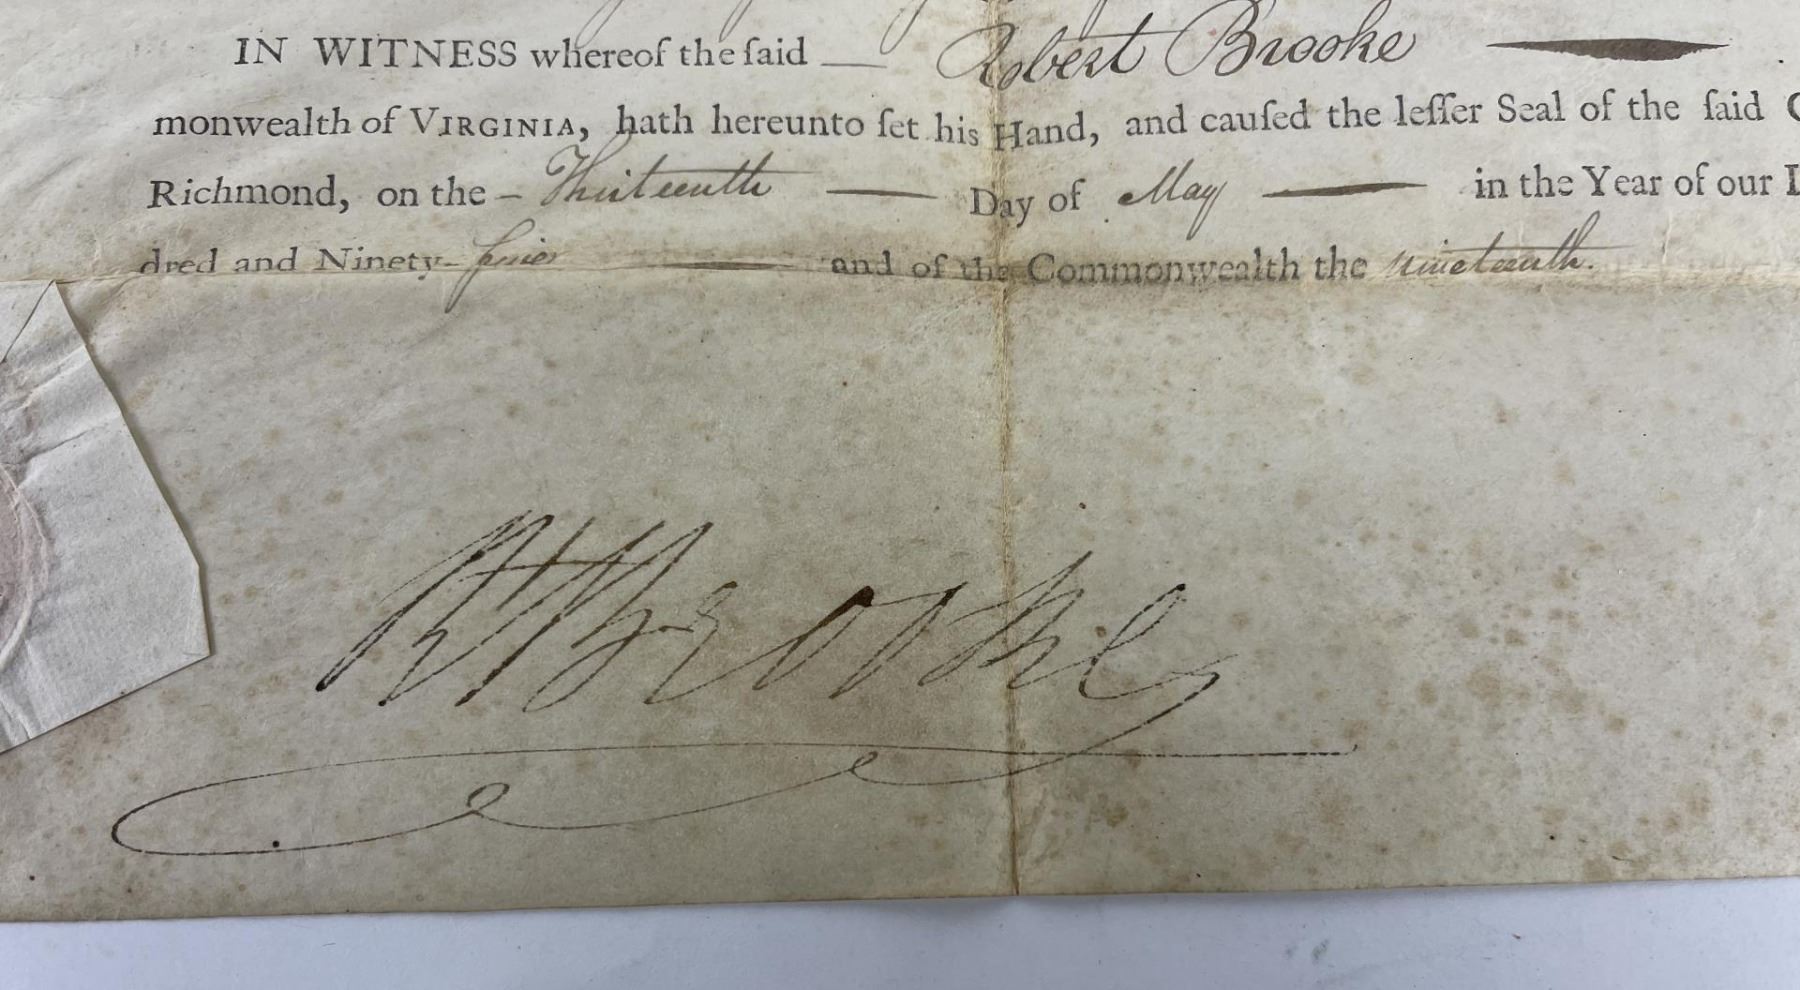 IN WITNESS whereof the ſaid — Robert Brooke
monwealth of VIRGINIA, hath hereunto ſet his Hand, and cauſed the leſſer Seal of the ſaid C
Richmond, on the – Thirteenth — Day of May — in the Year of our L
dred and Ninety- five — and of the Commonwealth the nineteenth.
Rt Brooke